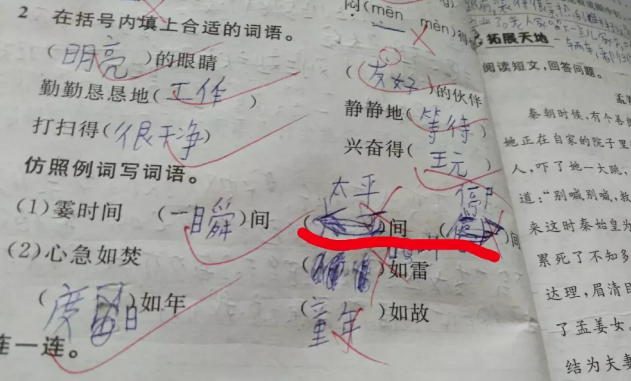 闷(mēn mèn)得
2 在括号内填上合适的词语。
(明亮)的眼睛 (友好)的伙伴
勤勤恳恳地(工作) 静静地(等待)
打扫得(很干净) 兴奋得(王元)
仿照例词写词语。
太平
(1)霎时间 (一瞬)间 ( )间 ( )间
(2)心急如焚 ( )如雷
(度 日)如年 (童年)如故
连一连。
拓展天地
阅读短文,回答问题。
孟
秦朝时候,有个善
她正在自家的院子里
人,吓了她一大跳,
道:“别喊别喊,救
来这时秦始皇为
累死了不知多
达理,眉清目
了孟姜女,
结为夫妻